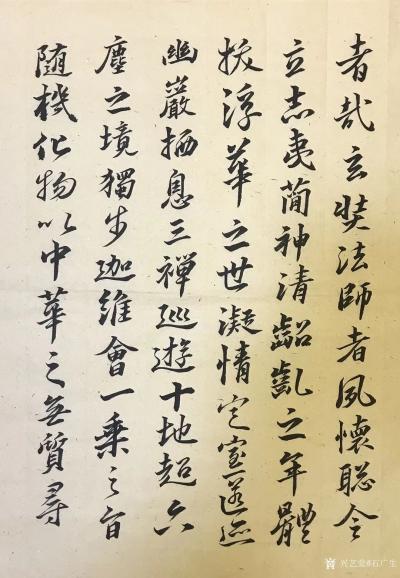 者哉玄奘法師者夙懷聡令
立志夷簡神清齠齔之年體
拔浮華之世凝情定室匿迹
幽巖栖息三禪巡遊十地超六
塵之境獨步迦維會一乘之旨
随機化物以中華之無質尋
兴艺堂#石广生